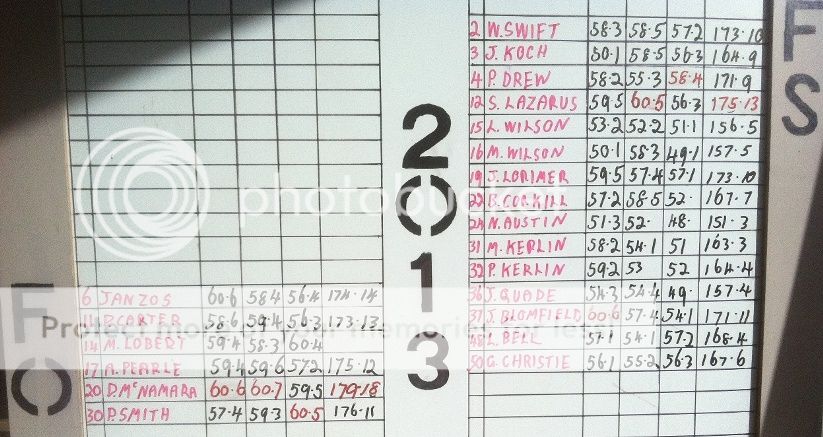 FO
6 JANZOS 60.6 58.4 56.4 174.14
11 P.CARTER 58.6 59.4 56.3 173.13
14 M.LOBERT 59.4 58.3 60.4
17 A.PEARLE 59.4 59.6 57.2 175.12
20 D.McNAMARA 60.6 60.7 59.5 179.18
30 P.SMITH 57.4 59.3 60.5 176.11
2013
2 W.SWIFT 58.3 58.5 57.2 173.10
3 J.KOCH 50.1 58.5 56.3 164.9
4 P.DREW 58.2 55.3 58.4 171.9
12 S.LAZARUS 59.5 60.5 56.3 175.13
15 L.WILSON 53.2 52.2 51.1 156.5
16 M.WILSON 50.1 58.3 49.1 157.5
19 J.LORIMER 59.5 57.4 57.1 173.10
B.CORKILL 57.2 58.5 52. 167.7
N.AUSTIN 51.3 52. 48. 151.3
31 M.KERLIN 58.2 54.1 51 163.3
32 P.KERLIN 59.2 53 52 164.4
36 J.QUADE 54.3 54.4 49. 157.4
37 J.BLOMFIELD 60.6 57.4 54.1 171.11
48 L.BELL 57.1 54.1 57.2 168.4
50 G.CHRISTIE 56.1 55.2 56.3 167.6
FS
photobucket